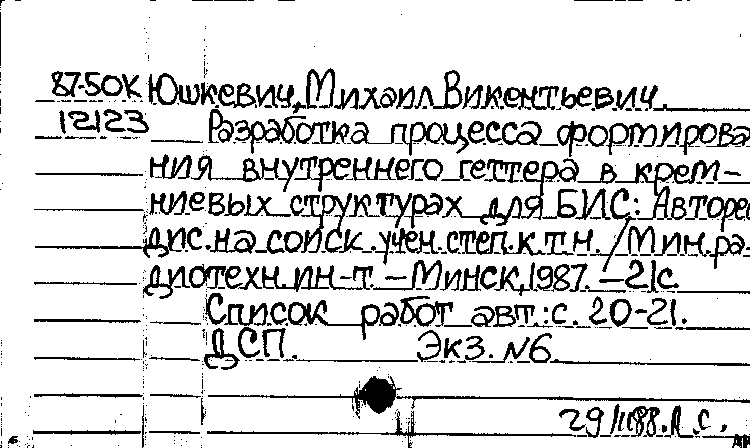 87-50К Юшкевич, Михаил Викентьевич.
12123 Разработка процесса формирова
ния внутреннего геттера в крем-
ниевых структурах для БИС: Авторе
дис. на соиск. учен. степ. к.т.н. / Мин. ра-
диотехн. ин-т. – Минск, 1987. – 21с.
Список работ авт.: с. 20-21.
ДСП. Экз. N6.